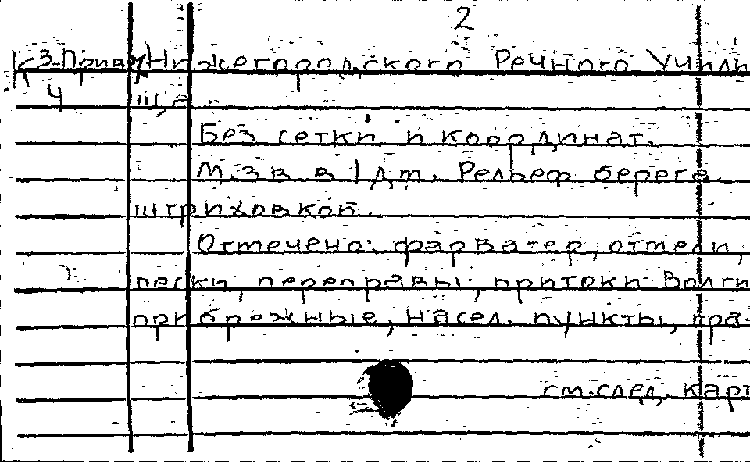 2
К 3-Прив/ Нижегородского Речного Учили
4 ща.
Без сетки и координат.
М. 3 в. в 1 дм. Рельеф берега
штриховкой.
Отмечено: фарватер, отмели,
пески, переправы, притоки Волги
прибрежные, насел. пункты,
см. след. карт